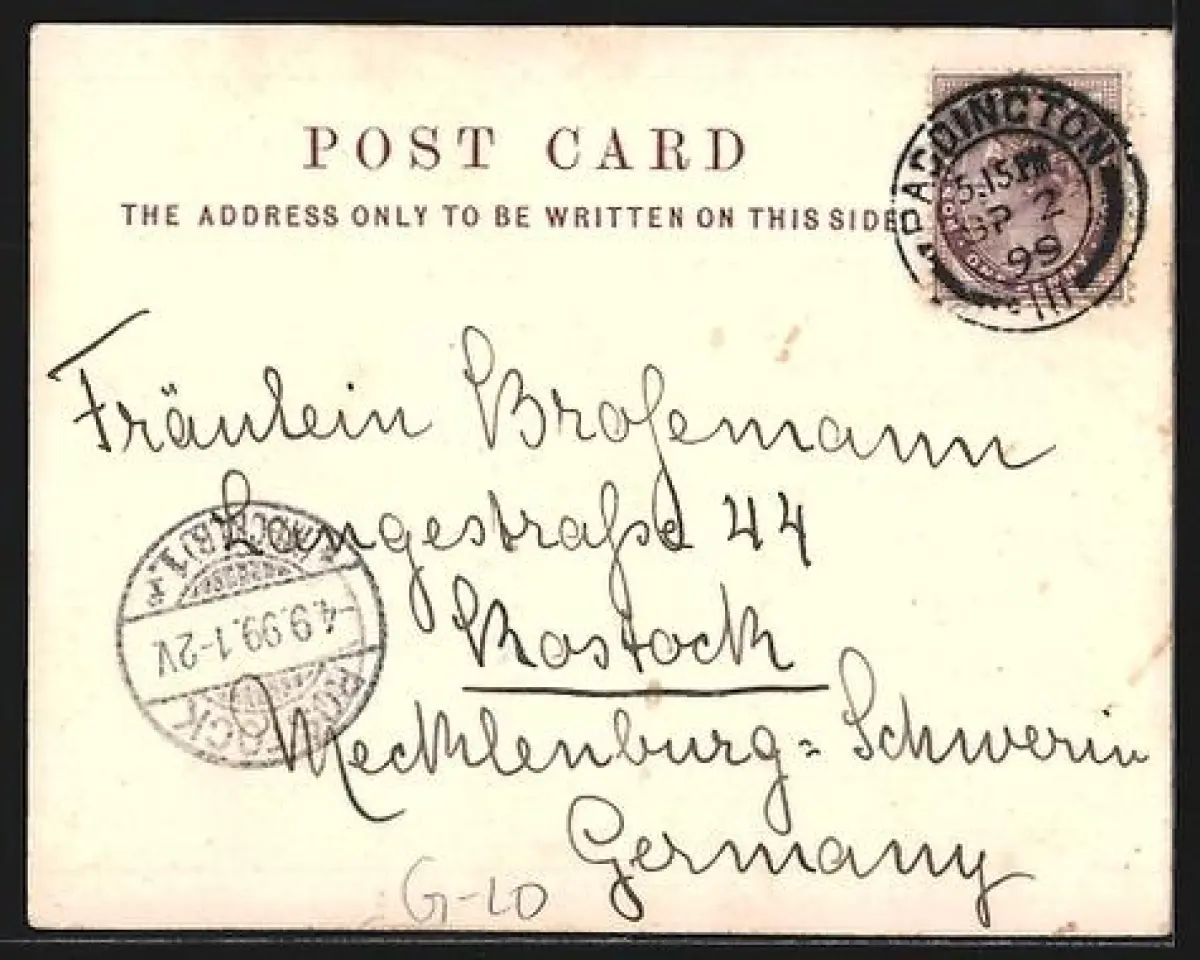 POST CARD
THE ADDRESS ONLY TO BE WRITTEN ON THIS SIDE
PADDINGTON
5.15 PM
SP 2
99
Fräulein Broſemann
Langestraſse 44
Rostock
Mecklenburg = Schwerin
Germany
ROSTOCK
4.9.99.1-2V
G-10